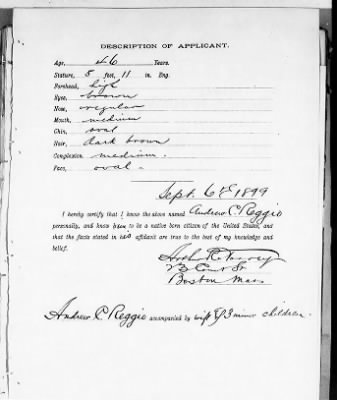 DESCRIPTION OF APPLICANT.
Age, 46 Years.
Stature, 5 feet, 11 in. Eng.
Forehead, high
Eyes, brown
Nose, regular
Mouth, medium
Chin, oval
Hair, dark brown
Complexion, medium.
Face, oval.
Sept. 6th 1899
I hereby certify that I know the above named Andrew C. Reggio
personally, and know him to be a native born citizen of the United States, and
that the facts stated in his affidavit are true to the best of my knowledge and
belief.
Court St
Boston Mass
Andrew C Reggio accompanied by wife & 3 minor children.